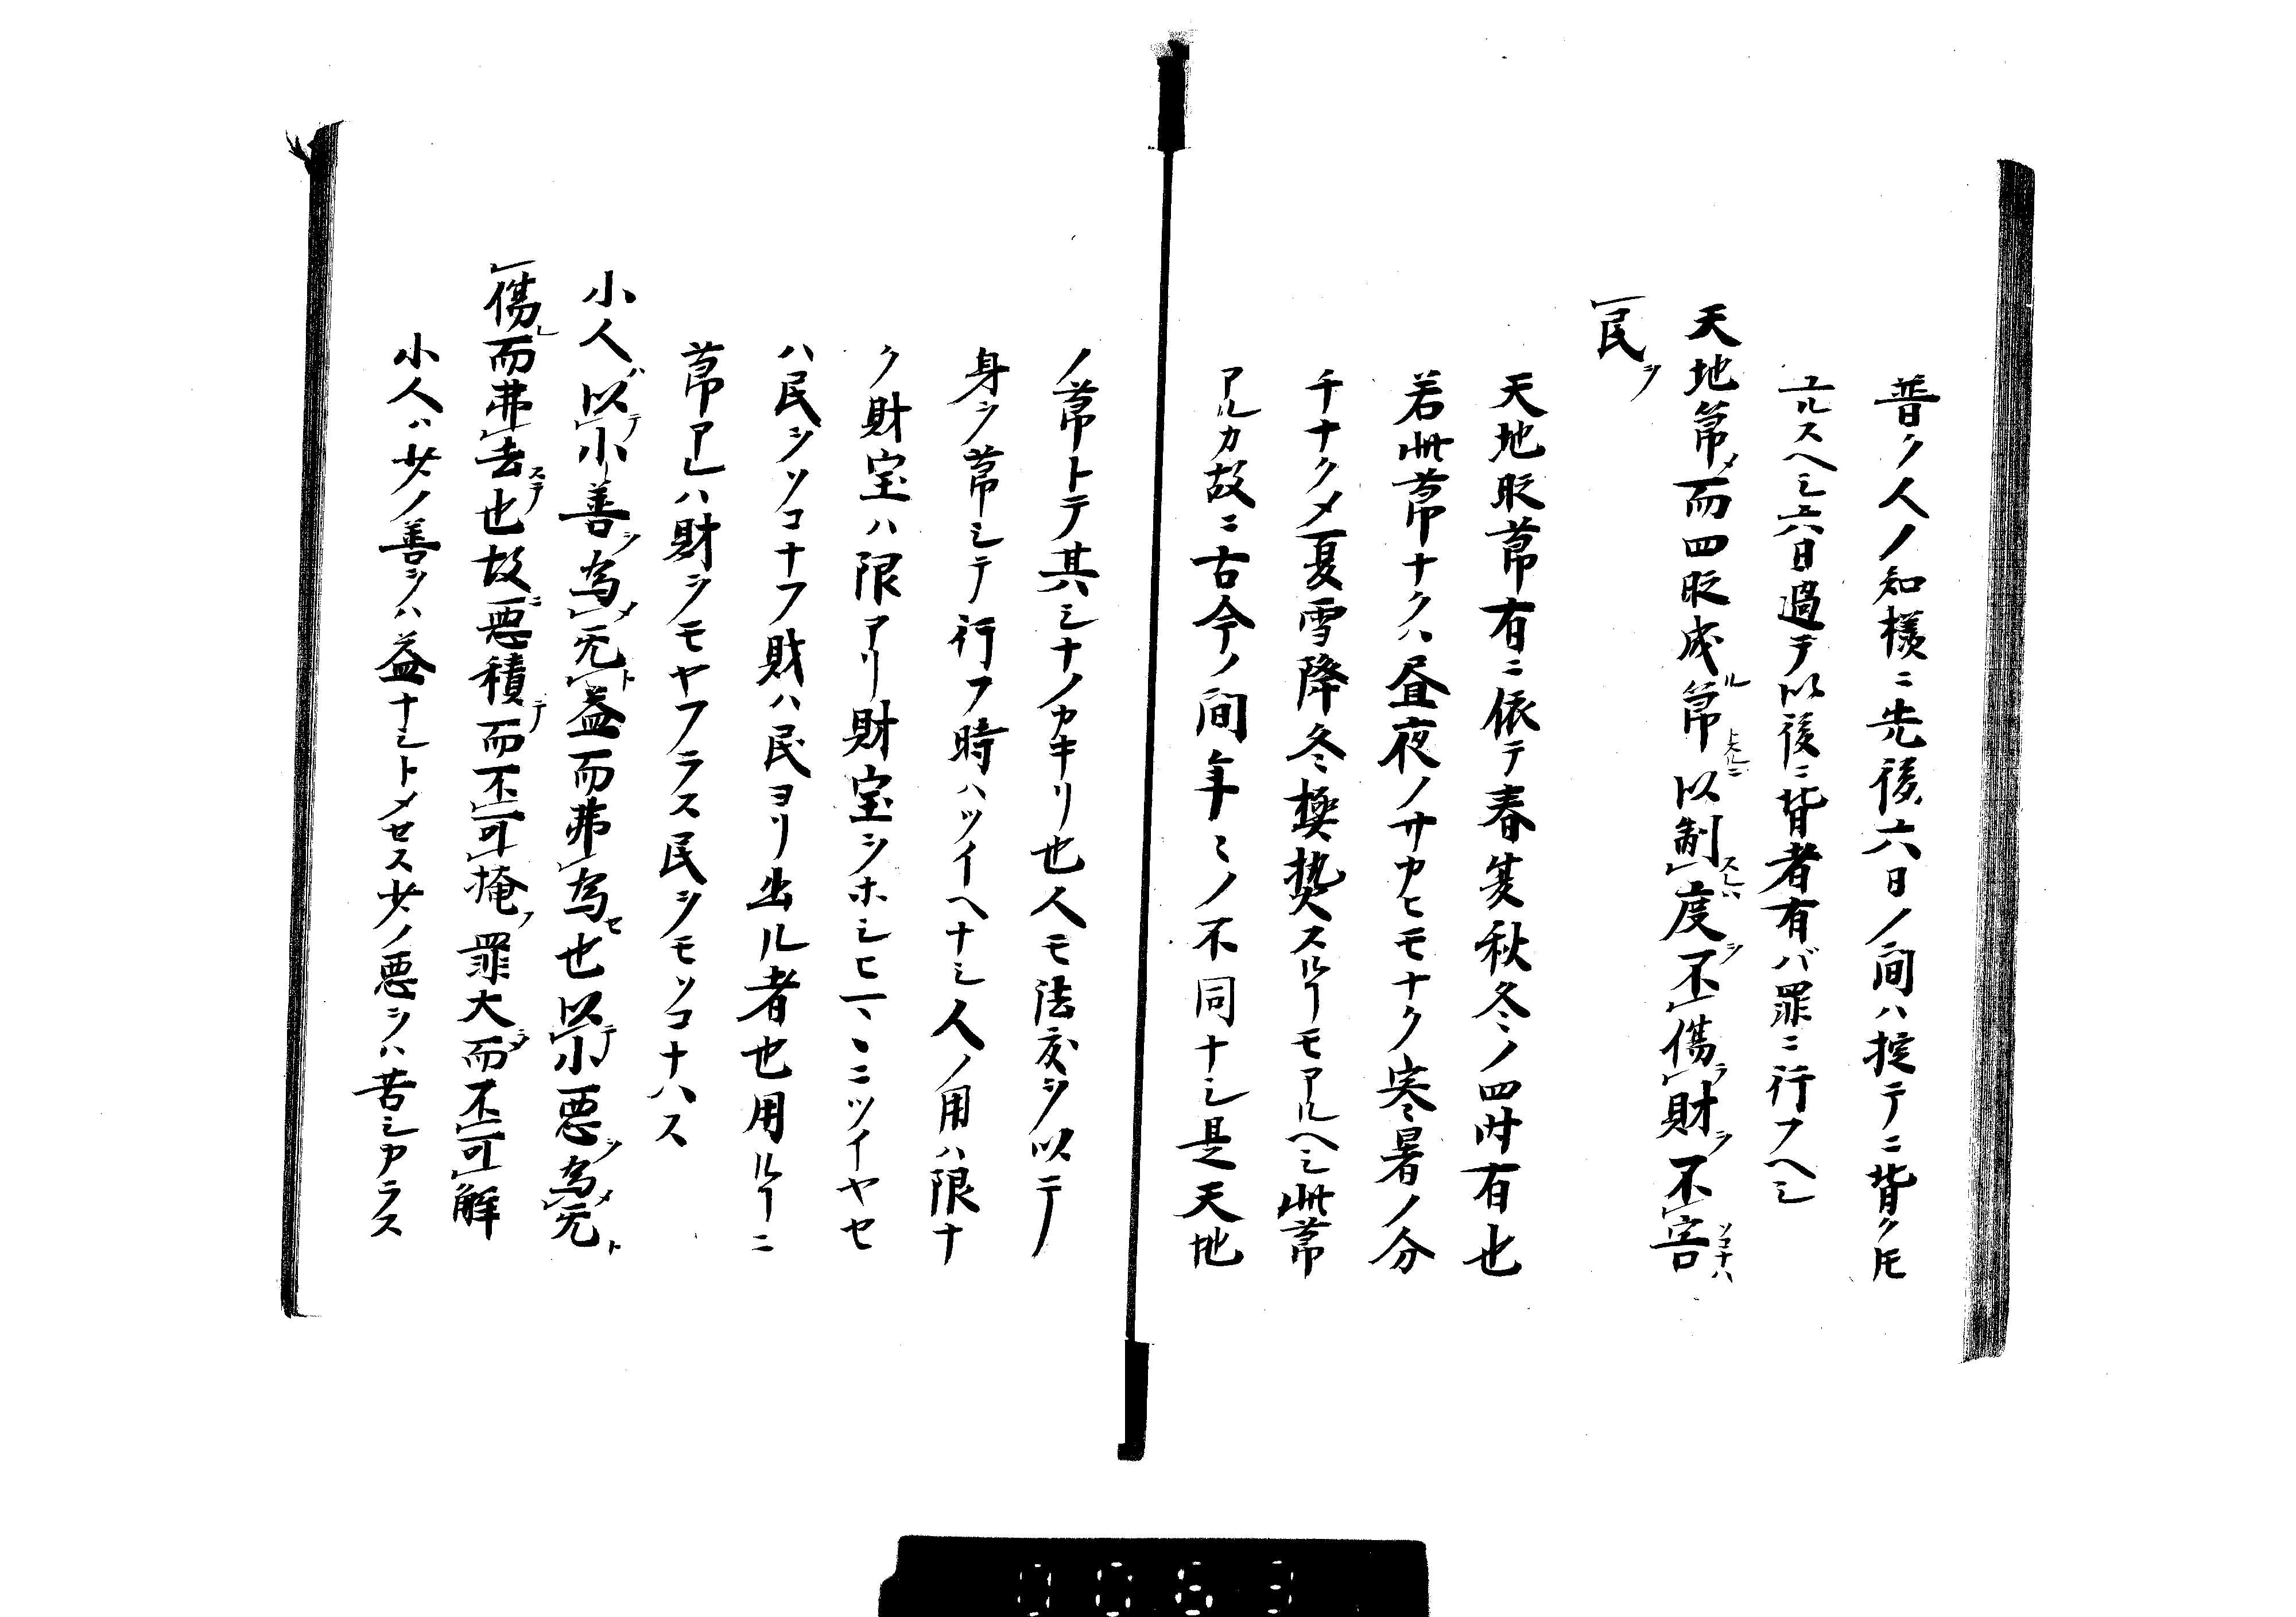 普ク人ノ知様ニ先後六日ノ間ハ掟テニ背クモ
ユルスヘシ六日過テ以後ニ背者有バ罪ニ行フヘシ
天地節メ而四時成ル節以制スレハ度ヲ不傷ラ財ヲ不害ソコナハ
民ヲ
天地時節有ニ依テ春夏秋冬ノ四时有也
若此節ナクハ昼夜ノサカヒモナク寒暑ノ分
チナクメ夏雪降冬極熱スルヿモアルヘシ此節
アルカ故ニ古今ノ間年ミノ不同ナシ是天地
ノ節トテ其シナノカキリ也人モ法度ヲ以テ
身ヲ節シテ行フ時ハツイヘナシ人ノ用ハ限ナ
ク財宝ハ限アリ財宝ヲホシヒマヽニツイヤセ
ハ民ヲソコナフ財ハ民ヨリ出ル者也用ルヿニ
節アレハ財ヲモヤフラス民ヲモソコナハス
小人以テ小善ヲ為メ无ト益而弗為セ也以テ小悪ヲ為メ无ト
傷レ而弗去ステ也故ニ悪積テ而不可掩フ罪大而不可解
小人ハ少ノ善ヲハ益ナシトメセス少ノ悪ヲハ苦シカラス